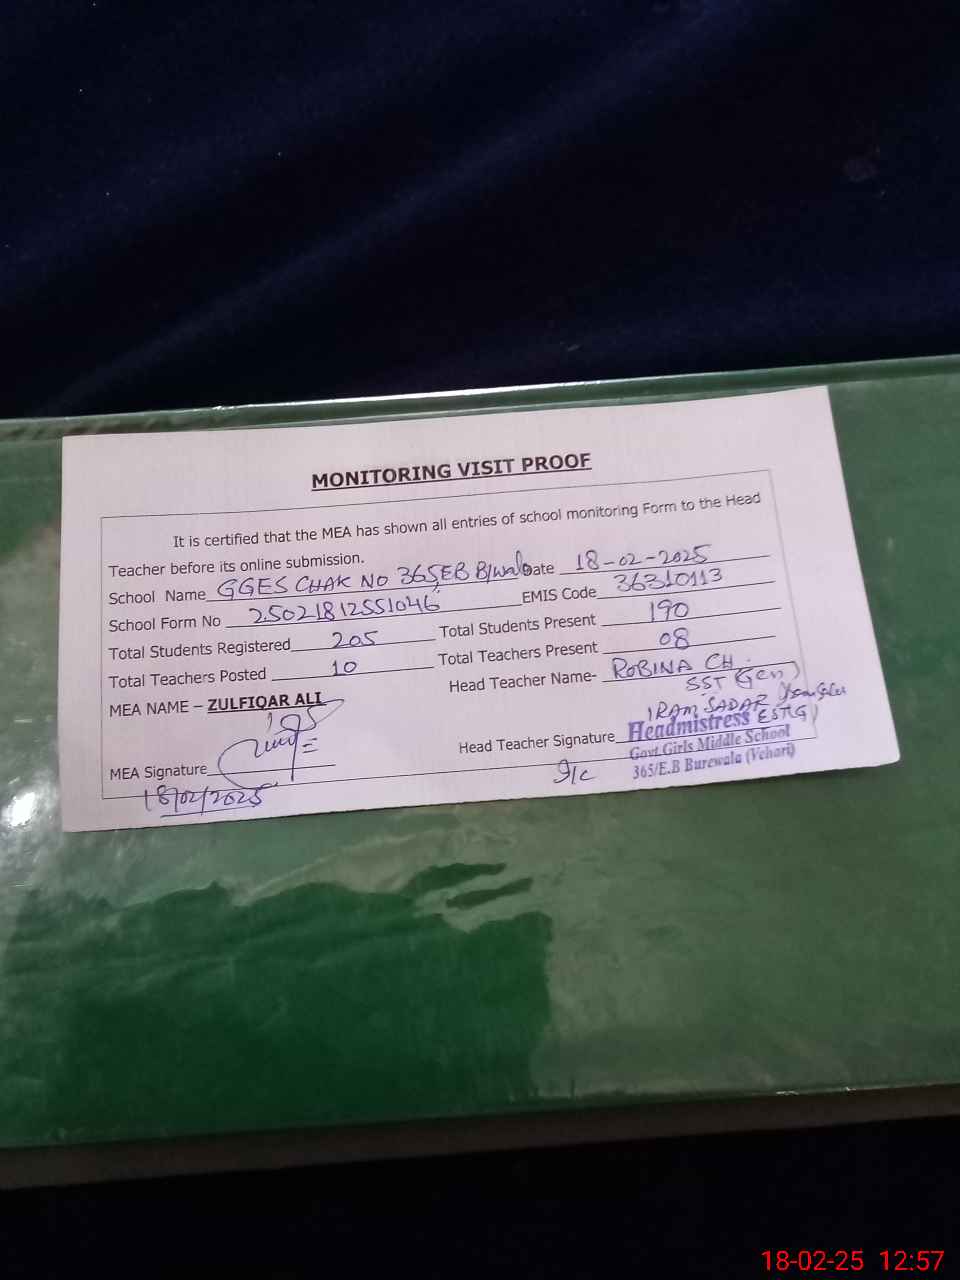 MONITORING VISIT PROOF
It is certified that the MEA has shown all entries of school monitoring Form to the Head
Teacher before its online submission.
School Name GGES CHAK NO 365EB B/wala Date 18-02-2025
School Form No 25021812551046 EMIS Code 36310113
Total Students Registered 205 Total Students Present 190
Total Teachers Posted 10 Total Teachers Present 08
MEA NAME – ZULFIQAR ALI Head Teacher Name- ROBINA CH.
SST (Gen)
IRAM SADAF
MEA Signature Head Teacher Signature Headmistress
Govt. Girls Middle School
365/E.B Burewala (Vehari)
I/c
18/02/2025
18-02-25 12:57